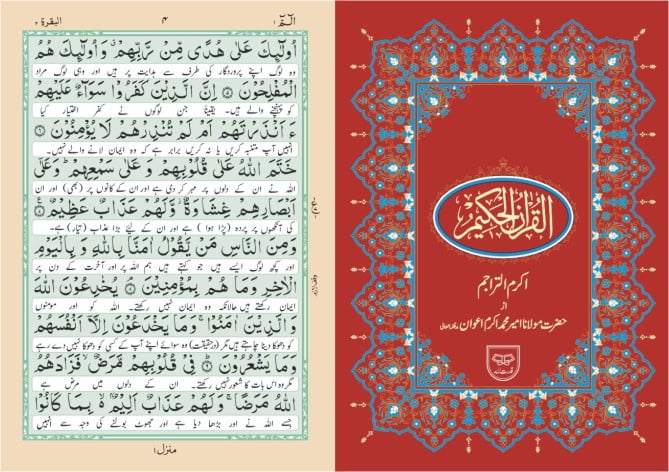 الٓمّٓ ١
٤
البقرة ٢
اُولٰٓئِكَ عَلٰى هُدًى مِّنْ رَّبِّهِمْ ۗ وَاُولٰٓئِكَ هُمُ
وہ لوگ اپنے پروردگار کی طرف سے ہدایت پر ہیں اور وہی لوگ مراد
الْمُفْلِحُوْنَ ۞ اِنَّ الَّذِيْنَ كَفَرُوْا سَوَآءٌ عَلَيْهِمْ
کو پہنچنے والے ہیں۔ یقیناً جن لوگوں نے کفر اختیار کیا
ءَاَنْذَرْتَهُمْ اَمْ لَمْ تُنْذِرْهُمْ لَا يُؤْمِنُوْنَ ۞
انہیں آپ متنبہ کریں یا نہ کریں برابر ہے کہ وہ ایمان لانے والے نہیں۔
خَتَمَ اللّٰهُ عَلٰى قُلُوْبِهِمْ وَعَلٰى سَمْعِهِمْ ۗ وَعَلٰٓى
اللہ نے ان کے دلوں پر مہر کر دی ہے اور ان کے کانوں پر (بھی) اور ان
اَبْصَارِهِمْ غِشَاوَةٌ ۫ وَّلَهُمْ عَذَابٌ عَظِيْمٌ ۞
کی آنکھوں پر پردہ (پڑا ہوا) ہے اور ان کے لئے بڑا عذاب (تیار) ہے۔
وَمِنَ النَّاسِ مَنْ يَّقُوْلُ اٰمَنَّا بِاللّٰهِ وَبِالْيَوْمِ
اور کچھ لوگ ایسے ہیں جو کہتے ہیں ہم اللہ پر اور آخرت کے دن پر
الْاٰخِرِ وَمَا هُمْ بِمُؤْمِنِيْنَ ۞ يُخٰدِعُوْنَ اللّٰهَ
ایمان رکھتے ہیں حالانکہ وہ ایمان نہیں رکھتے۔ اللہ کو اور مومنوں
وَالَّذِيْنَ اٰمَنُوْا ۚ وَمَا يَخْدَعُوْنَ اِلَّآ اَنْفُسَهُمْ
کو دھوکا دینا چاہتے ہیں مگر (درحقیقت) وہ سوائے اپنے آپ کے کسی کو دھوکا نہیں دے رہے
وَمَا يَشْعُرُوْنَ ۞ فِيْ قُلُوْبِهِمْ مَّرَضٌ ۙ فَزَادَهُمُ
مگر وہ اس بات کا شعور نہیں رکھتے۔ ان کے دلوں میں مرض ہے
اللّٰهُ مَرَضًا ۚ وَلَهُمْ عَذَابٌ اَلِيْمٌۢ ۙ بِمَا كَانُوْا
جسے اللہ نے اور بڑھا دیا ہے اور جھوٹ بولنے کی وجہ سے انہیں
منزل ١
القرآن الحكيم
اکرم التراجم
از
حضرت مولانا امیر محمد اکرم اعوان